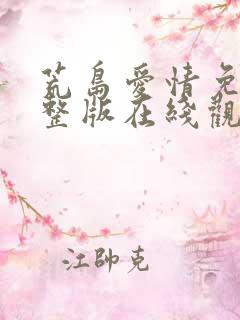 荒島愛情免
整版在綫觀
江帥克